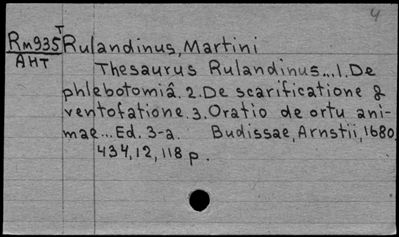 4
T
Rm935 Rulandinus, Martini
AHT Thesaurus Rulandinus...1. De
phlebotomiâ. 2. De scarificatione &
ventofatione. 3. Oratio de ortu ani-
mae... Ed. 3-a. Budissae, Arnstii, 1680
434, 12, 118 p.